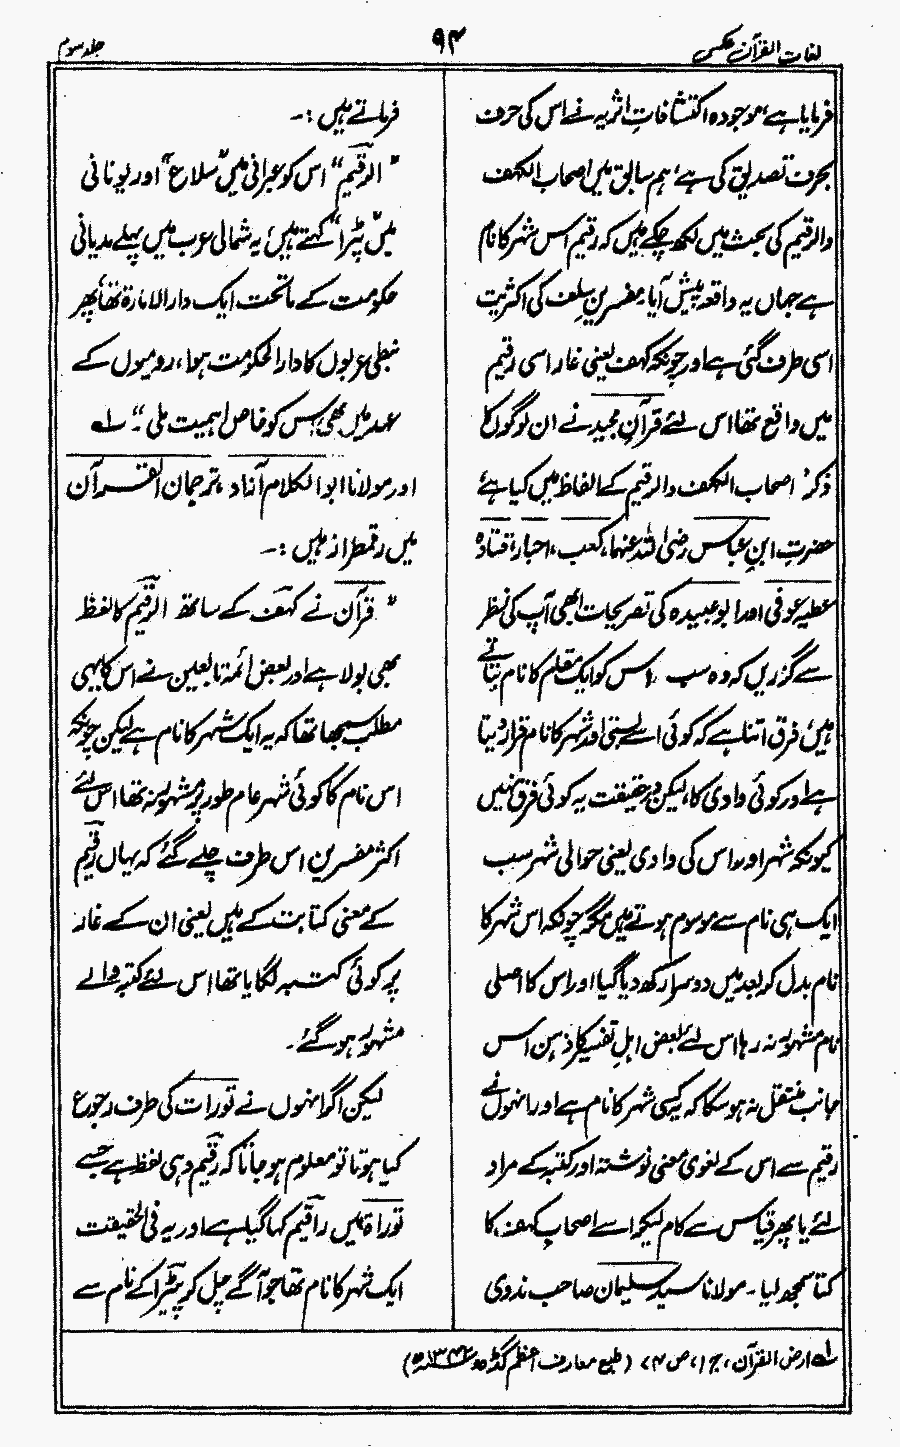 لغات القرآن عکسی
۹۴
جلد سوم
فرمایا ہے، موجودہ اکتشافاتِ اثریہ نے اس کی حرف
بحرف تصدیق کی ہے، ہم سابق میں اصحاب الکہف
والرقیم کی بحث میں لکھ چکے ہیں کہ رقیم اس شہر کا نام
ہے جہاں یہ واقعہ پیش آیا، مفسرینِ سلف کی اکثریت
اسی طرف گئی ہے اور چونکہ کہف یعنی غار اسی رقیم
میں واقع تھا اس لئے قرآن مجید نے ان لوگوں کا
ذکر "اصحاب الکہف والرقیم کے الفاظ میں کیا ہے
حضرت ابن عباس رضی اللہ عنہما، کعب، احبار، قتادہ
عطیہ عوفی اور ابو عبیدہ کی تصریحات بھی آپ کی نظر
سے گزریں کہ وہ سب اس کو ایک مقام کا نام بتاتے
ہیں، فرق اتنا ہے کہ کوئی اسے بستی اور شہر کا نام قرار دیتا
ہے اور کوئی وادی کا، لیکن درحقیقت یہ کوئی فرق نہیں
کیونکہ شہر اور اس کی وادی یعنی حوالی شہر سب
ایک ہی نام سے موسوم ہوتے ہیں مگر چونکہ اس شہر کا
نام بدل کر بعد میں دوسرا رکھ دیا گیا اور اس کا اصلی
نام مشہور نہ رہا اس لئے بعض اہل تفسیر کا ذہن اس
جانب منتقل نہ ہو سکا کہ یہ کسی شہر کا نام ہے اور انہوں نے
رقیم سے اس کے لغوی معنی نوشتہ اور کتبہ کے مراد
لئے یا پھر قیاس سے کام لیکر اسے اصحاب کہف کا
کتا سمجھ لیا۔ مولانا سید سلیمان صاحب ندوی
فرماتے ہیں :۔
"الرقیم" اس کو عبرانی میں "سلاع" اور یونانی
میں "پٹرا" کہتے ہیں، یہ شمالی عرب میں پہلے مدیانی
حکومت کے ماتحت ایک دار الامارۃ تھا، پھر
نبطی عربوں کا دار الحکومت ہوا، رومیوں کے
عہد میں بھی اس کو خاص اہمیت ملی"۔ ۱ه
اور مولانا ابو الکلام آزاد، ترجمان القرآن
میں رقمطراز ہیں :۔
"قرآن نے کہف کے ساتھ الرقیم کا لفظ
بھی بولا ہے اور بعض ائمہ تابعین نے اس کا یہی
مطلب سمجھا تھا کہ یہ ایک شہر کا نام ہے لیکن چونکہ
اس نام کا کوئی شہر عام طور پر مشہور نہ تھا اس لئے
اکثر مفسرین اس طرف چلے گئے کہ یہاں رقیم
کے معنی کتابت کے ہیں یعنی ان کے غار
پر کوئی کتبہ لگایا تھا اس لئے کتبہ والے
مشہور ہو گئے۔
لیکن اگر انہوں نے تورات کی طرف رجوع
کیا ہوتا تو معلوم ہو جاتا کہ رقیم وہی لفظ ہے جسے
توراۃ میں راقیم کہا گیا ہے اور یہ فی الحقیقت
ایک شہر کا نام تھا جو آگے چل کر پیٹرا کے نام سے
۱ه ارض القرآن، ج ۱، ص ۷۴ (طبع معارف اعظم گڈھ ۱۳۴۲ھ)